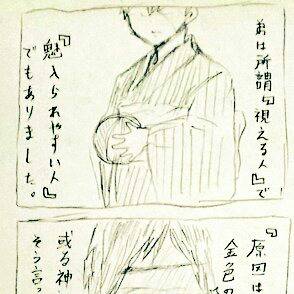 弟は所謂『視える人』で
『魅入られやすい人』
でもありました。
『原因は
金色の
或る神
そう言っ